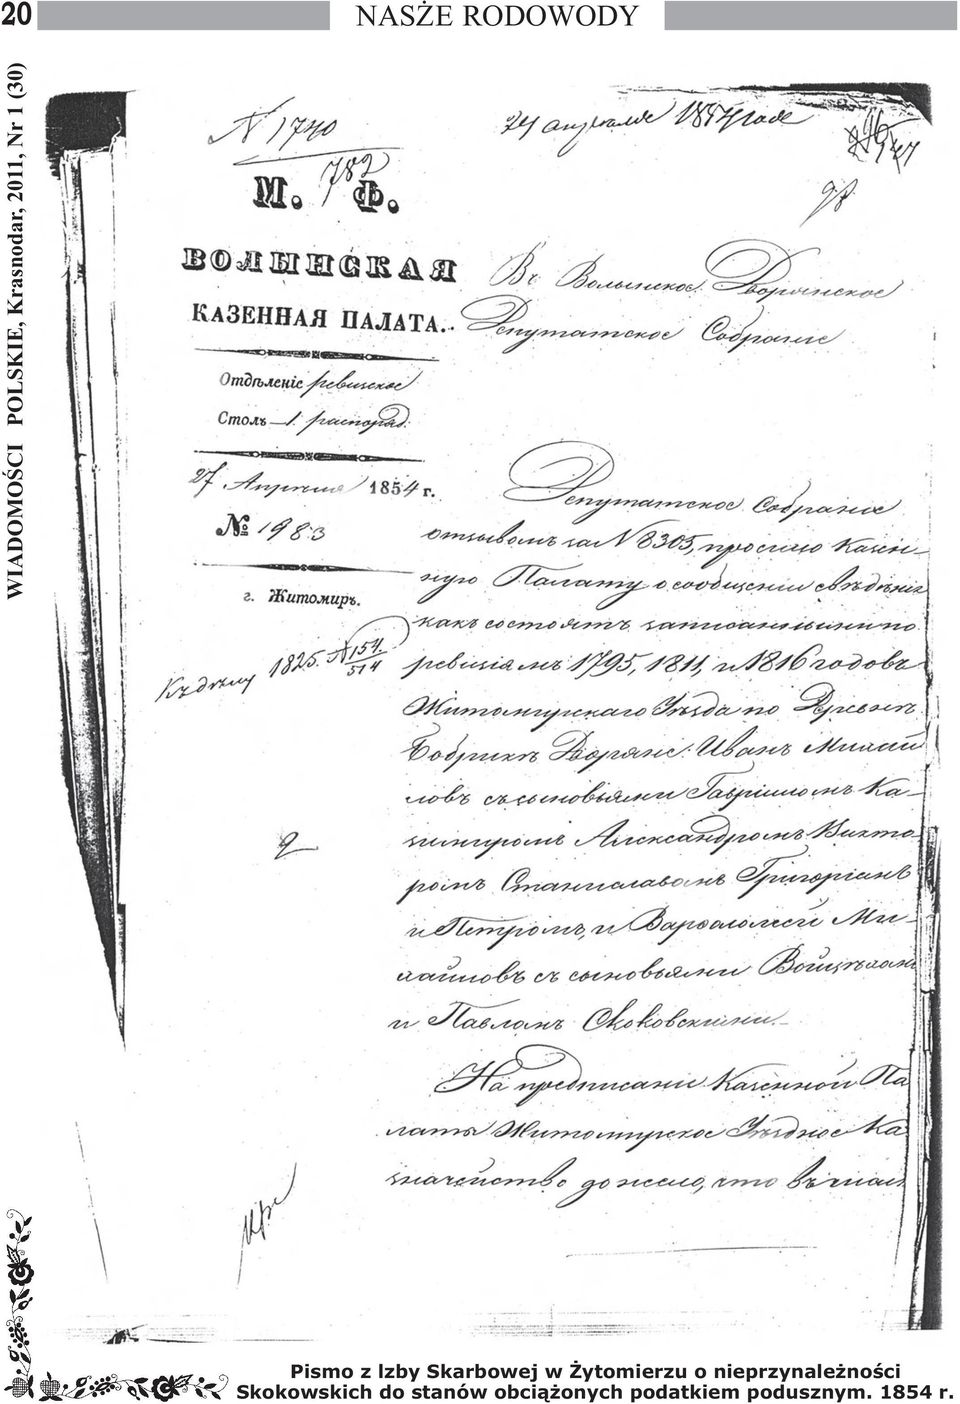 20
NASŻE RODOWODY
WIADOMOŚCI POLSKIE, Krasnodar, 2011, Nr 1 (30)
N 1740
782
М. Ф.
ВОЛЫНСКАЯ
КАЗЕННАЯ ПАЛАТА.
Отдѣленіе ревизское
Столъ 1. распоряд.
27 Апреля 1854 г.
№ 1983
г. Житомиръ.
Къ дѣлу 1825. N 154.
514
24 апреля 1854 года
Въ Волынское Дворянское
Депутатское Собрание
Депутатское Собрание
отзывомъ за N 8305, просило Казен-
ную Палату о сообщении свѣдѣния
какъ состоятъ записанными по
ревизиямъ 1795, 1811, и 1816 годовъ
Житомирскаго Уѣзда по Деревнѣ
Бобрикѣ Дворяне: Иванъ Михай
ловъ съ сыновьями Гаврииломъ Ка-
зимиромъ Александромъ Викто-
ромъ Станиславомъ Григориемъ
и Петромъ, и Варфоломей Ми-
хайловъ съ сыновьями Войцѣхомъ
и Павломъ Скоковскими.
На предписании Казенной Па
латы Житомирское Уѣздное Ка
значейство донесло, что въ
Pismo z Izby Skarbowej w Żytomierzu o nieprzynależności
Skokowskich do stanów obciążonych podatkiem podusznym. 1854 r.